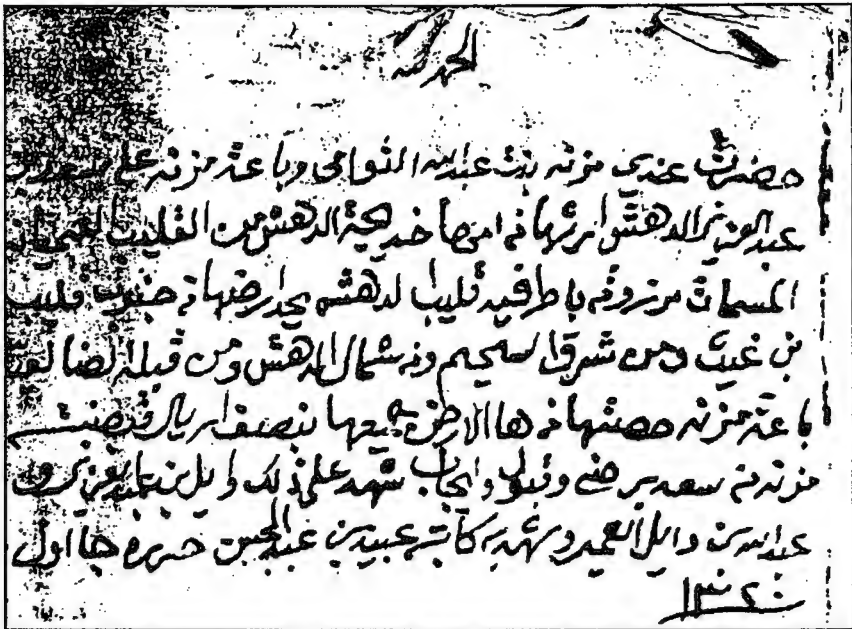 الحمد لله
حضرت عندي مزنه بنت عبدالله التوامى وباعة مزنه على سعد بن
عبدالعزيز الدهش ارثها من امها خديجة الدهش من القليب
المسمات مرزوقه باطرفيه قليب الدهش يحد ارضها من جنوب قليب
بن غيث ومن شرق السحيم ومن شمال الدهش ومن قبلة
باعة مزنه حصتها من ها الارض جميعها بنصف اريال قبضته
مزنه من سعد برضى وقبول وايجاب شهد على ذلك وايل بن عبدالعزيز و
عبدالله بن وايل العمير وشهد به كاتبه عبيد بن عبدالمحسن حرره جا اول
١٣٢٠